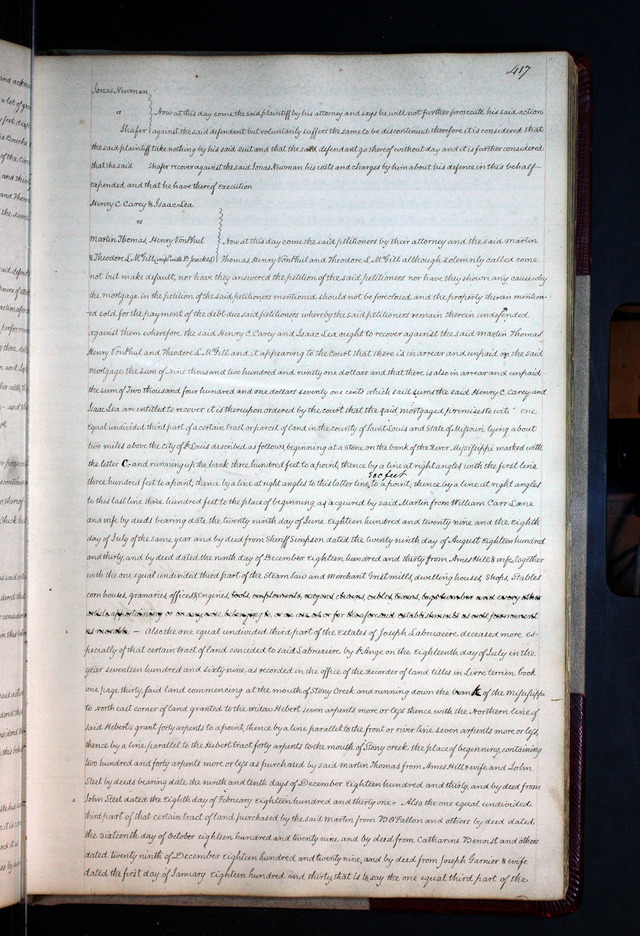 417
Jonas Newman
vs Now at this day come the said plaintiff by his attorney and says he will not further prosecute his said action
Shafer against the said defendant but voluntarily suffers the same to be discontinued therefore it is considered that
the said plaintiff take nothing by his said suit and that the said defendant go thereof without day and it is further considered
that the said Shafer recover against the said Jonas Newman his costs and charges by him about his defence in this behalf
expended and that he have thereof execution
Henry C. Carey & Isaac Lea
vs
Martin Thomas, Henry VonPhul Now at this day come the said petitioners by their attorney and the said Martin
& Theodore L McGill Thomas Henry VonPhul and Theodore L. McGill although solemnly called come
not but make default, nor have they answered the petition of the said petitioners nor have they shown any cause why
the mortgage in the petition of the said petitioners mentioned should not be foreclosed and the property therein mention-
ed sold for the payment of the debt due said petitioners whereby the said petitioners remain therein undefended
against them wherefore the said Henry C. Carey and Isaac Lea ought to recover against the said Martin Thomas,
Henry VonPhul and Theodore L. McGill and it appearing to the Court that there is in arrear and unpaid on the said
mortgage the sum of Nine thousand two hundred and ninety one dollars and that there is also in arrear and unpaid
the sum of Two thousand four hundred and one dollars seventy one cents which said sums the said Henry C. Carey and
Isaac Lea are entitled to recover it is thereupon ordered by the court that the said mortgaged premises to wit "one
equal undivided third part of a certain tract or parcel of land in the county of Saint Louis and State of Missouri lying about
two miles above the city of St Louis described as follows, beginning at a stone on the bank of the River Mississippi marked with
the letter C, and running up the bank three hundred feet to a point, thence by a line at right angles with the first line
300 feet
three hundred feet to a point, thence by a line at right angles to this latter line, to a point, thence by a line at right angles
to this last line three hundred feet to the place of beginning as acquired by said Martin from William Carr Lane
and wife by deeds bearing date the twenty ninth day of June Eighteen hundred and twenty nine and the Eighth
day of July of the same year and by deed from Sheriff Simpson dated the twenty ninth day of August Eighteen hundred
and thirty, and by deed dated the ninth day of December Eighteen hundred and thirty from Ames Hill & wife, together
with the one equal undivided third part of the Steam Saw and merchant Grist mills, dwelling houses, Shops, Stables
corn houses, granaries, offices & Engines, tools, implements, waggons chains, and every other
as movable — Also the one equal undivided third part of the Estates of Joseph Labruxiere deceased more es-
pecially of that certain tract of land conceded to said Labruxiere, by St Ange on the Eighteenth day of July in the
year seventeen hundred and sixty nine as recorded in the office of the Recorder of land titles in Livre terrien book
one page thirty, said land commencing at the mouth of Stony Creek and running down the bank of the Mississippi
to North east corner of land granted to the widow Hebert seven arpents more or less thence with the Northern line of
said Hebert's grant forty arpents to a point, thence by a line parallel to the front or river line seven arpents more or less,
thence by a line parallel to the Hebert tract forty arpents to the mouth of Stony creek, the place of beginning, containing
two hundred and forty arpents more or less as purchased by said Martin Thomas from Ames Hill & wife and John
Steel by deeds bearing date the ninth and tenth days of December Eighteen hundred and thirty, and by deed from
John Steel dated the Eighth day of February Eighteen hundred and thirty one. Also the one equal undivided
third part of that certain tract of land purchased by the said Martin from O'Fallon and others by deed dated
the sixteenth day of October eighteen hundred and twenty nine, and by deed from Catharine Benoist and others
dated twenty ninth of December eighteen hundred and twenty nine, and by deed from Joseph Garnier & wife
dated the first day of January Eighteen hundred and thirty, that is to say the one equal third part of the